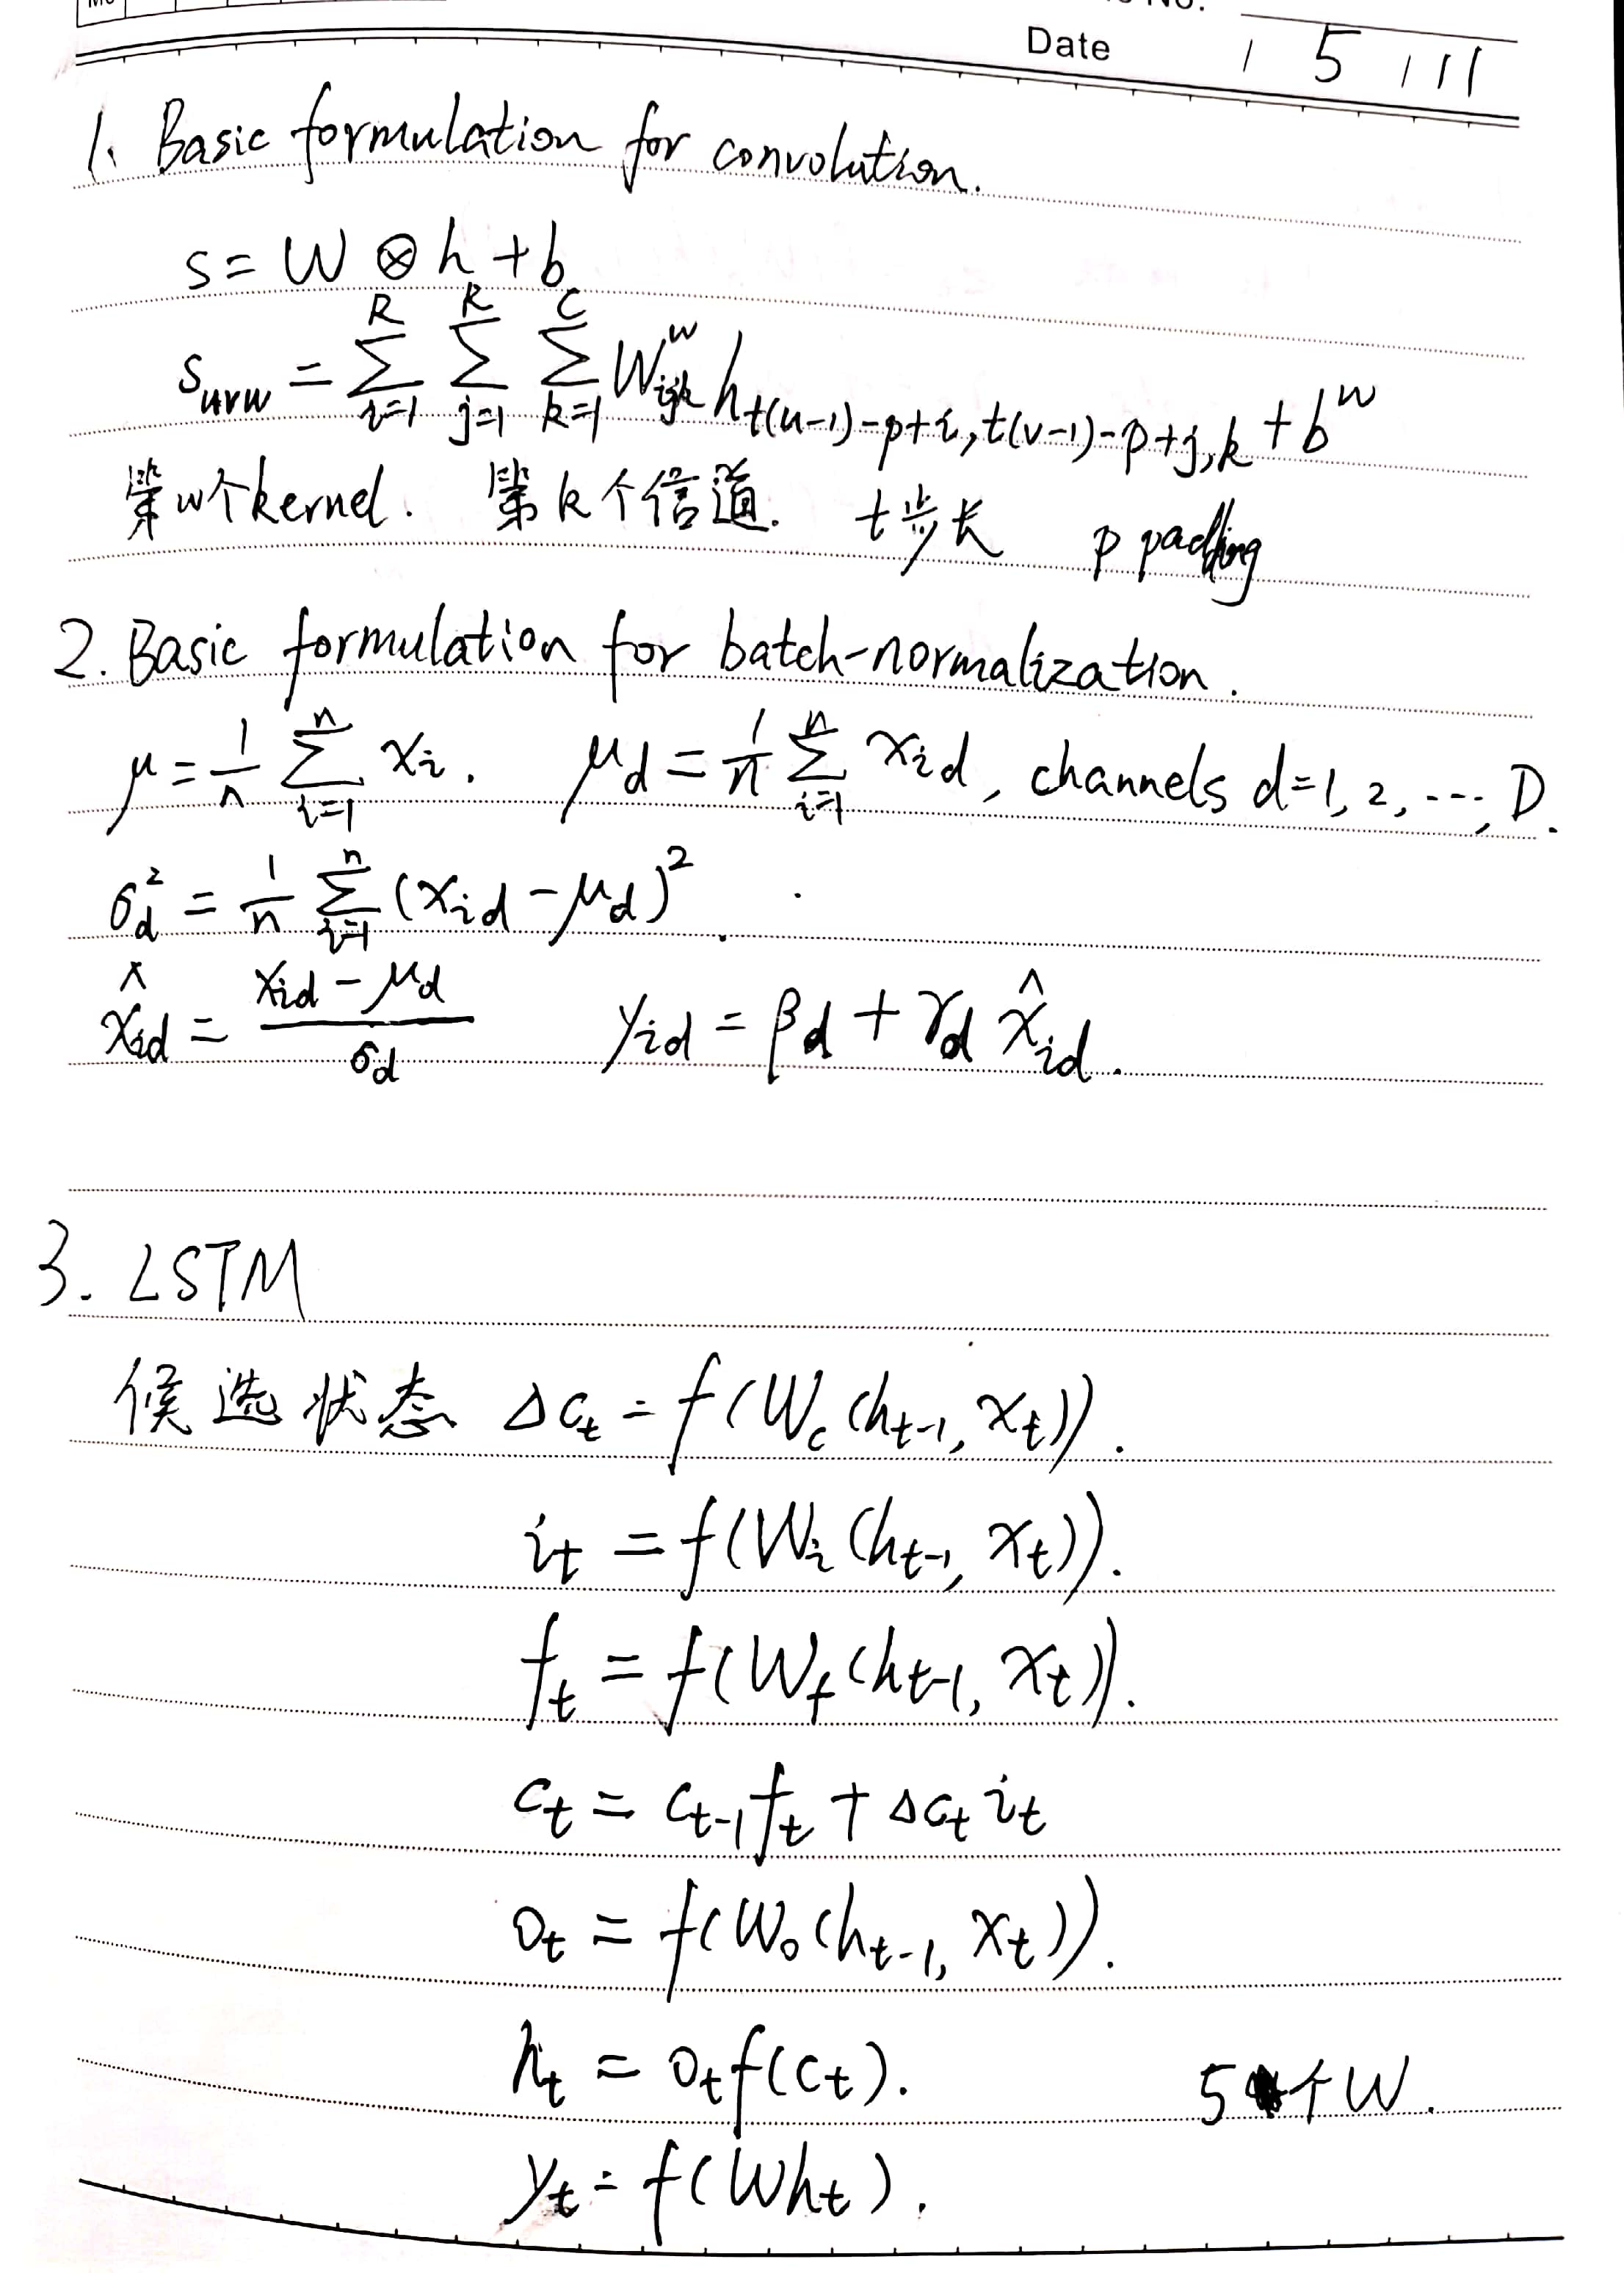 Date 5 11
1、Basic formulation for convolution.
s = W ⊗ h + b
s_{uvw} = \sum_{i=1}^{R} \sum_{j=1}^{R} \sum_{k=1}^{C} W_{ijk}^{w} h_{t(u-1)-p+i, t(v-1)-p+j, k} + b^{w}
第w个kernel. 第k个信道. t步长 p padding
2. Basic formulation for batch-normalization.
μ = \frac{1}{n} \sum_{i=1}^{n} x_i. μ_d = \frac{1}{n} \sum_{i=1}^{n} x_{id}, channels d=1, 2, ..., D.
σ_d^2 = \frac{1}{n} \sum_{i=1}^{n} (x_{id} - μ_d)^2.
\hat{x}_{id} = \frac{x_{id} - μ_d}{σ_d} y_{id} = β_d + γ_d \hat{x}_{id}.
3. LSTM
候选状态 Δc_t = f(W_c(h_{t-1}, x_t)).
i_t = f(W_i(h_{t-1}, x_t)).
f_t = f(W_f(h_{t-1}, x_t)).
c_t = c_{t-1} f_t + Δc_t i_t
o_t = f(W_o(h_{t-1}, x_t)).
h_t = o_t f(c_t). 5个W.
y_t = f(W h_t).